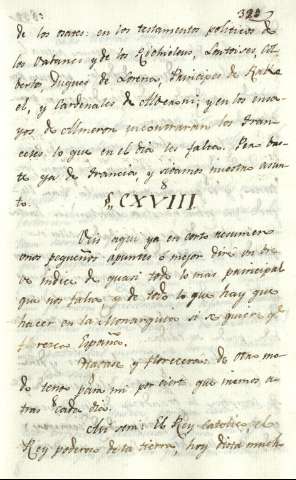 322
de los mares: en los testamentos politicos de
los Vatanes y de los Richelieus, Louvoises, Col
berto, Duques de Lorena, Principes de Rake
el, y Cardenales de Alberoni; y en los ensa
yos, de Almeron encontraran los Fran
ceses lo que en el dia les falta. Pero bas
te ya de Francia, y sigamos nuestro asun
to.
§ CXVIII
Ves aqui ya en corto resumen
unos pequeños apuntes o mejor diré un bre
ve indice de quasi todo lo mas principal
que nos falta y de todo lo que hay que
hacer en la Monarquia si se quiere q.e
florezca España.
Hagase y florecera: de otro mo
do tengo para mi por cierto que iremos a
tras cada dia.
Asi será: El Rey catolico, el
Rey poderoso de la tierra, hoy dista mucho